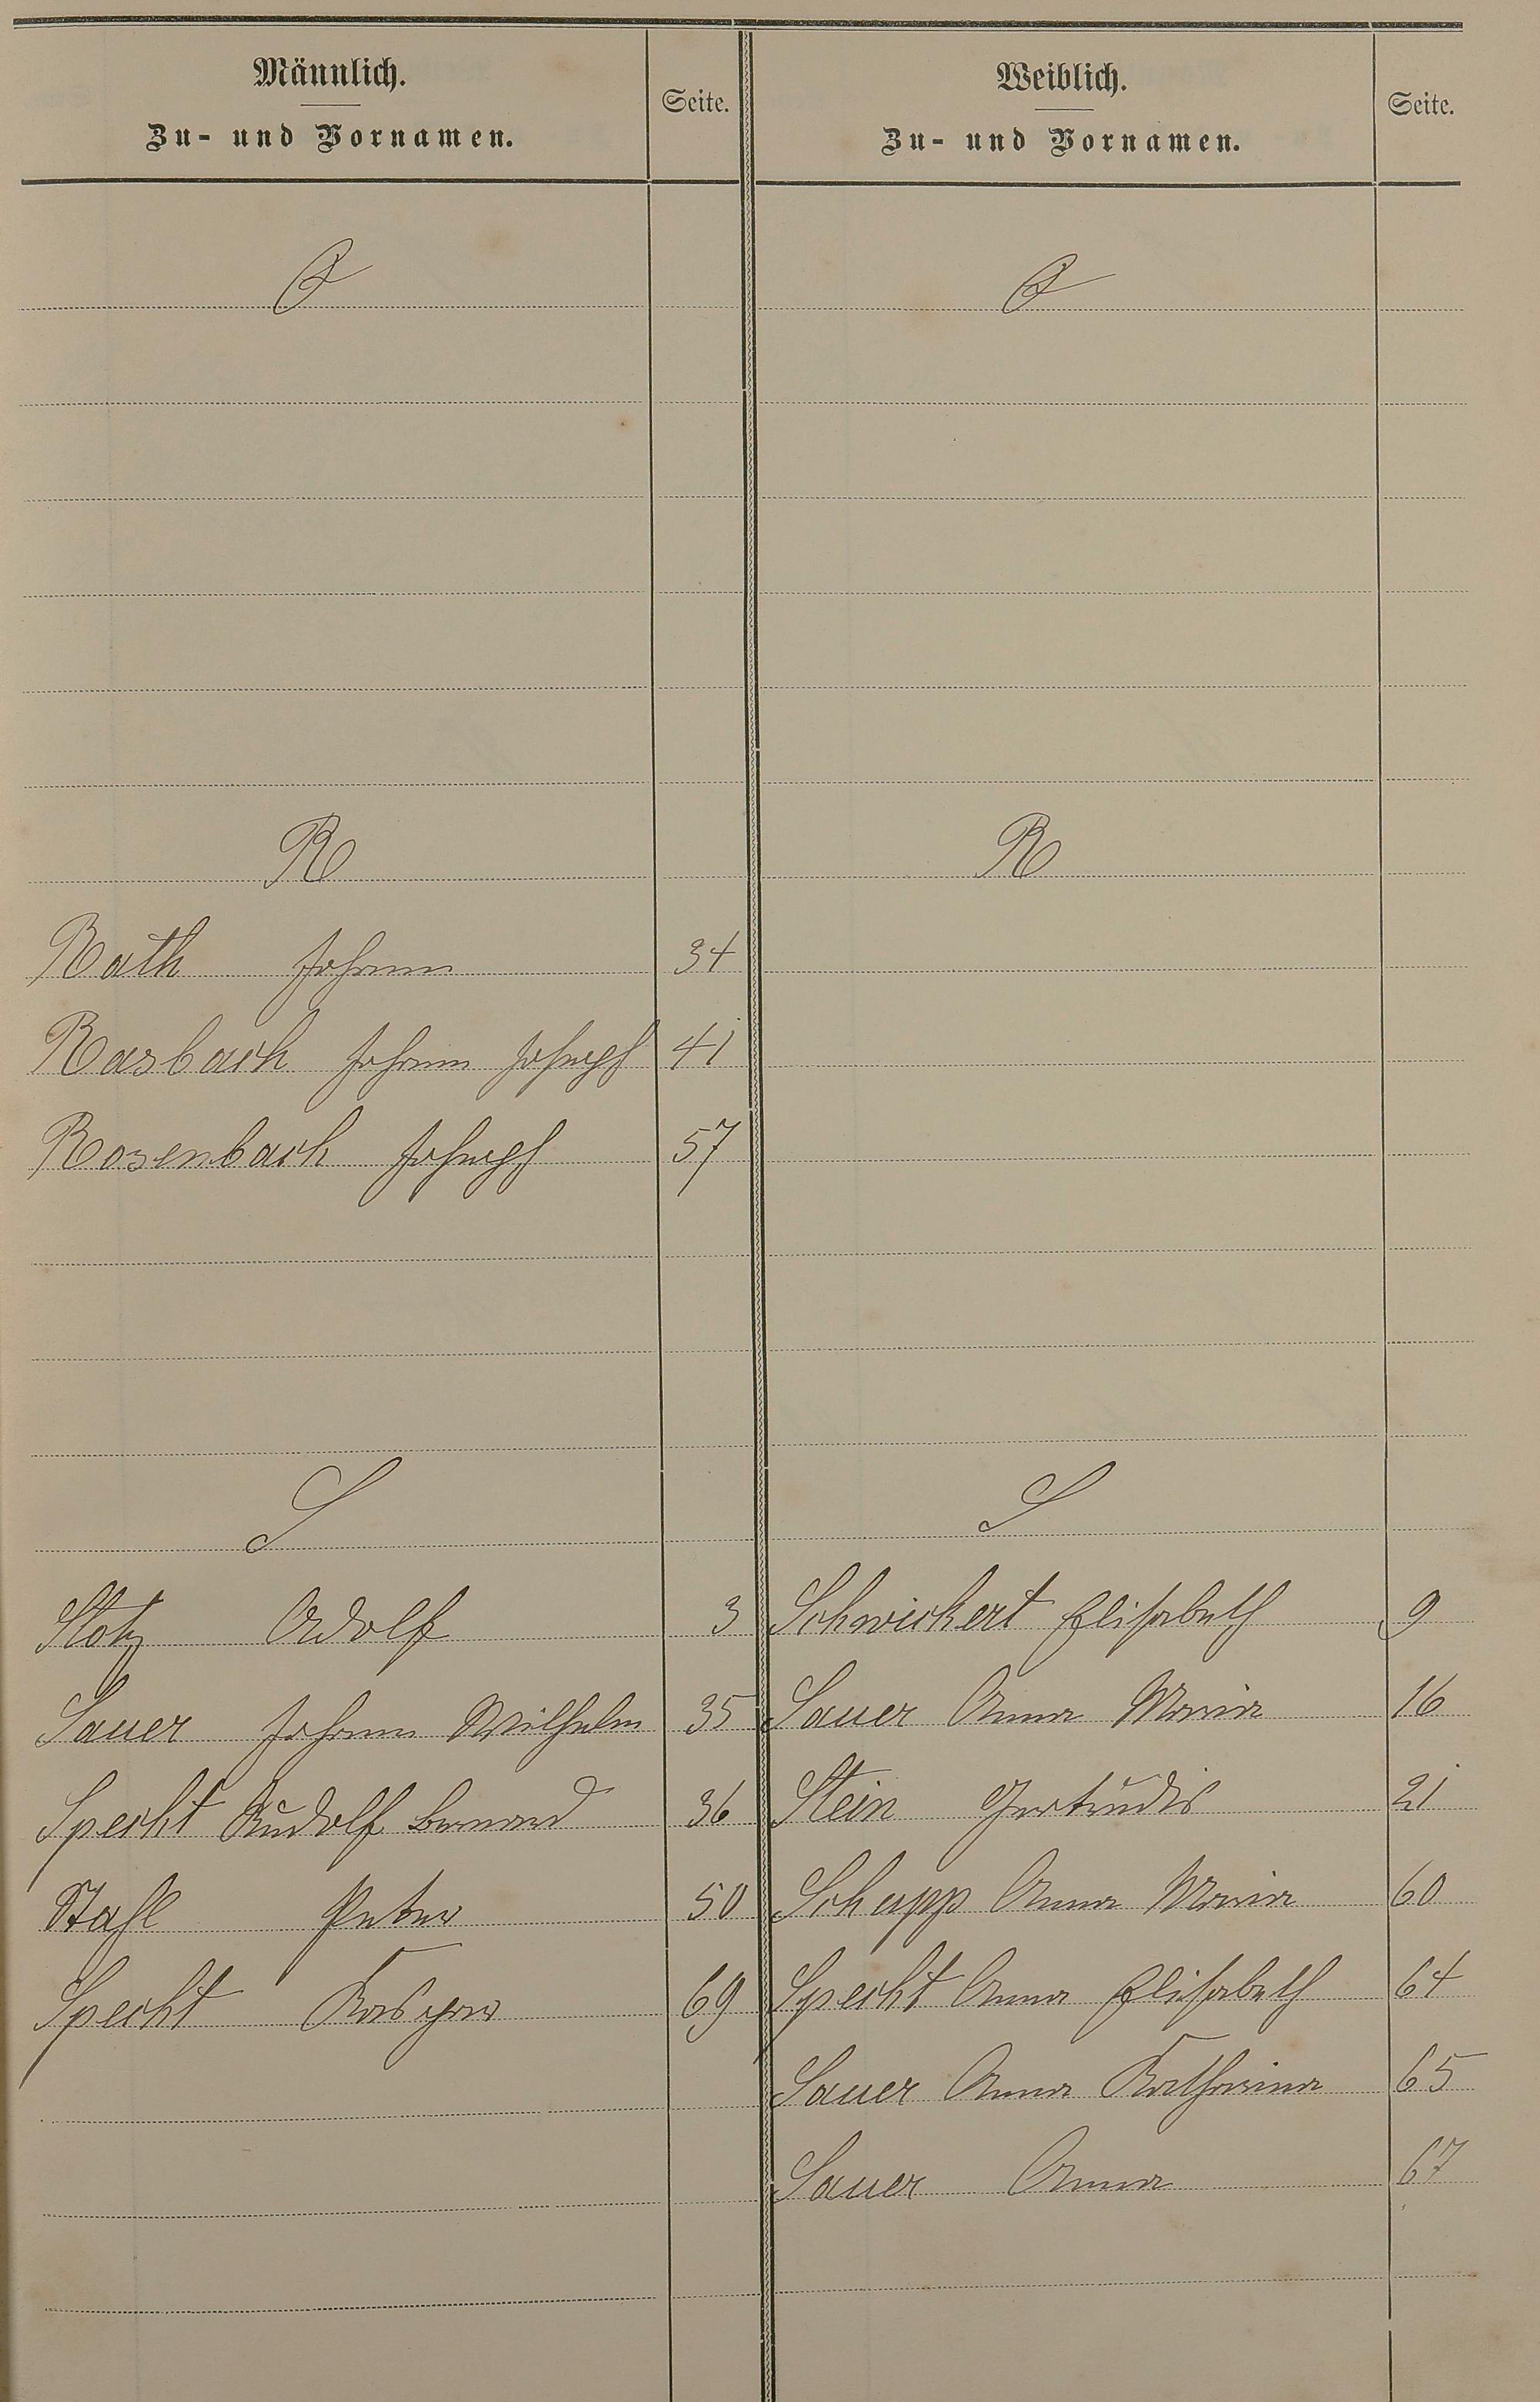 Männlich.
Zu- und Vornamen.
Seite.
Weiblich.
Zu- und Vornamen.
Seite.
Q
Q
R
R
Rath Johann 34
Rasbach Johann Joseph 41
Rosenbach Joseph 57
S
S
Stotz Adolf 3
Schwickert Elisabeth 9
Sauer Johann Wilhelm 35
Sauer Anna Maria 16
Specht Rudolf Bernard 36
Stein Gertrudis 21
Stahl Peter 50
Schupp Anna Maria 60
Specht Kaspar 69
Specht Anna Elisabeth 64
Sauer Anna Katharina 65
Sauer Anna 67